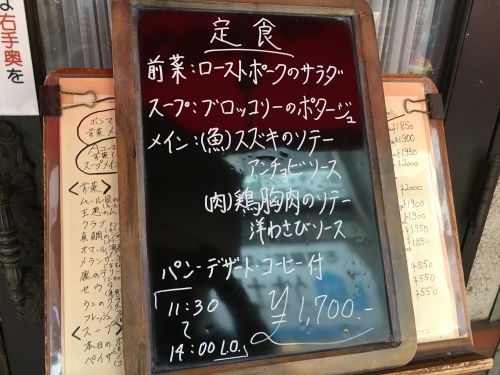 右手奥を
定食
前菜:ローストポークのサラダ
スープ:ブロッコリーのポタージュ
メイン:(魚)スズキのソテー
アンチョビソース
(肉)鶏胸肉のソテー
洋わさびソース
パン・デザート・コーヒー付
11:30
〜
14:00 L.O.
¥1,700.-
<前菜>
ムール
クラブ
真鯛の
オマール
メラン
鹿のテ
セウ
ウニの
フレッシュ
<スープ>
本日の
ペイザン
¥1850
¥1950
¥2000
¥1900
¥1900
¥550
¥550
¥550